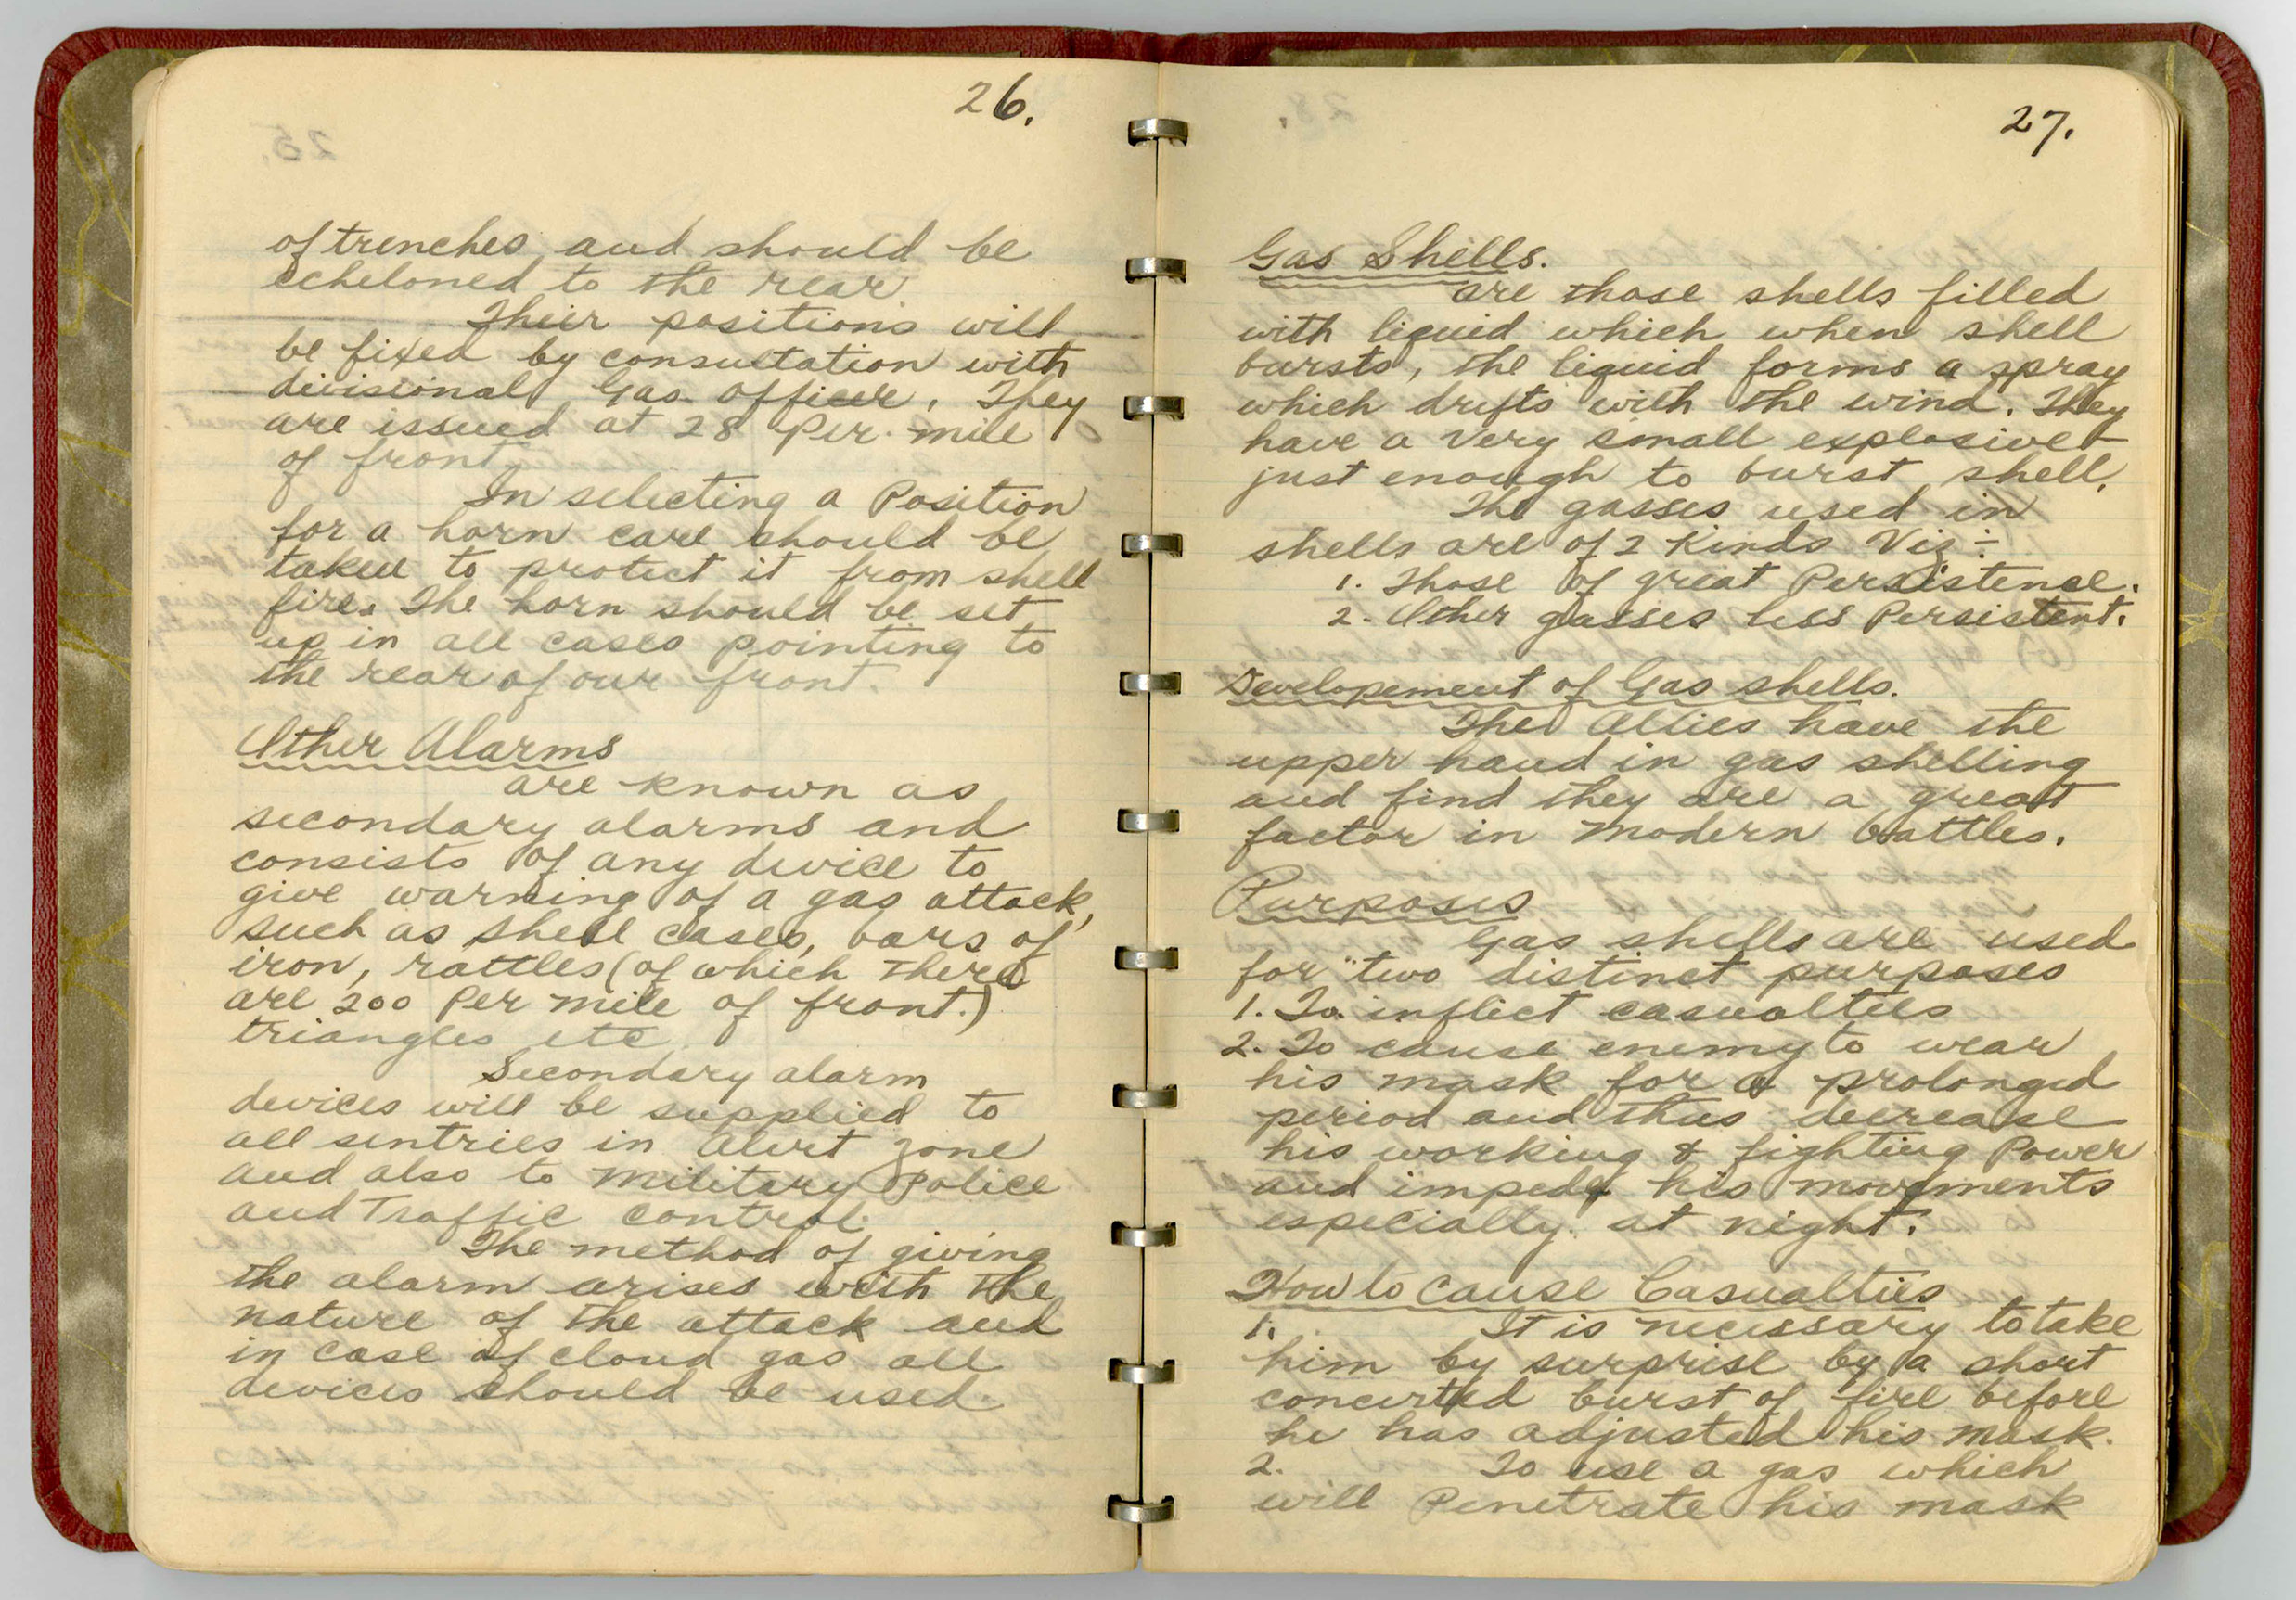 26.
of trenches and should be
echeloned to the rear.
Their positions will
be fixed by consultation with
divisional Gas Officer. They
are issued at 28 Per. mile
of front.
In selecting a Position
for a horn care should be
taken to protect it from shell
fire. The horn should be set
up in all cases pointing to
the rear of our front.
Other Alarms
are known as
secondary alarms and
consists of any device to
give warning of a gas attack,
such as shell cases, bars of
iron, rattles (of which there
are 200 Per mile of front.)
triangles etc.
Secondary alarm
devices will be supplied to
all sentries in Alert zone
and also to Military Police
and Traffic control.
The method of giving
the alarm arises with the
nature of the attack and
in case of cloud gas all
devices should be used.
27.
Gas Shells.
are those shells filled
with liquid which when shell
bursts, the liquid forms a spray
which drifts with the wind. They
have a very small explosive-
just enough to burst shell.
The gasses used in
shells are of 2 Kinds Viz:-
1. Those of great Persistence.
2. Other gasses less Persistent.
Developement of Gas shells.
The Allies have the
upper hand in gas shelling
and find they are a great
factor in modern battles.
Purposes
Gas shells are used
for two distinct purposes
1. To inflict casualties
2. To cause enemy to wear
his mask for a prolonged
period and thus decrease
his working & fighting Power
and impede his movements
especially at night.
How to cause Casualties
1. It is necessary to take
him by surprise by a short
concerted burst of fire before
he has adjusted his mask.
2. To use a gas which
will Penetrate his mask